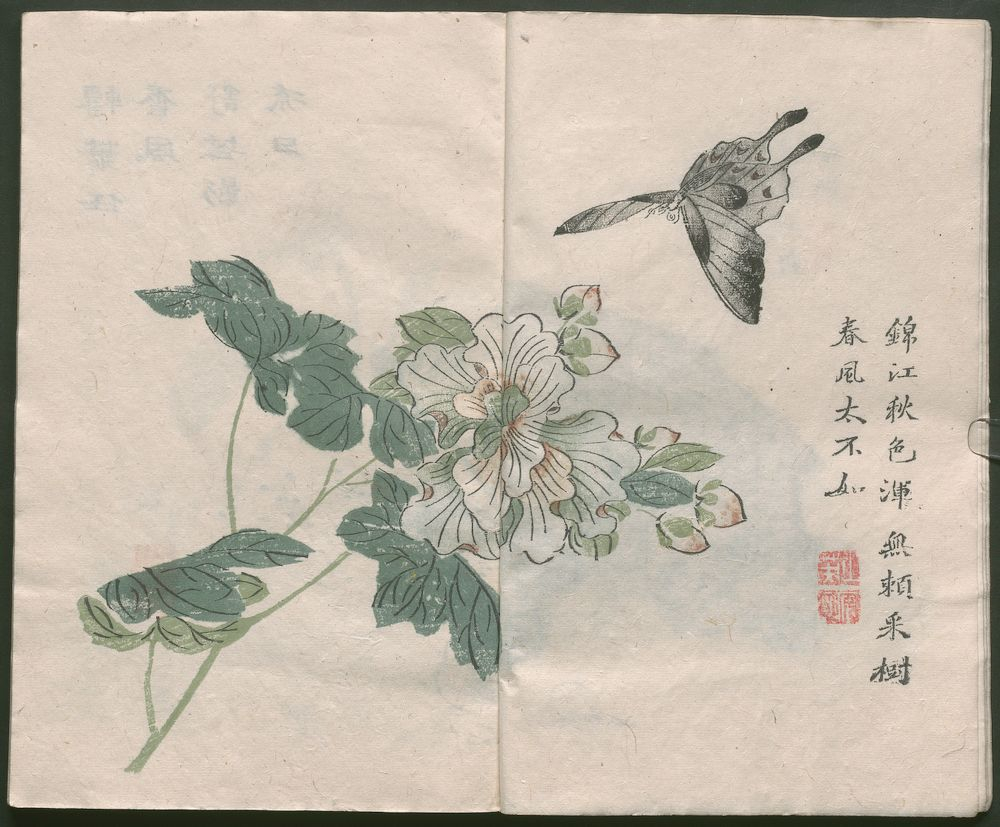 錦江秋色渾無頼采樹
春風太不如